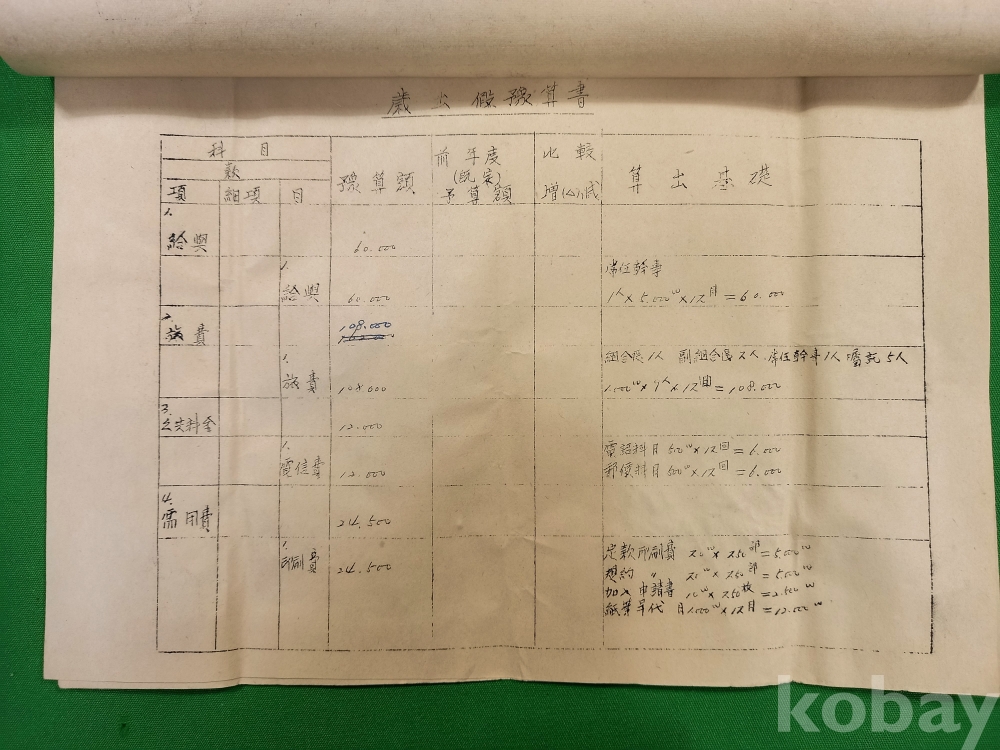 歲出假豫算書
科目
款
項 細項 目 豫算額 前年度 予算額 比較 增(△)減 算出基礎
1.
給與 60.000
1.
給與 60.000
常任幹事
1人×5.000W×12月=60.000
2.
旅費 108.000
1.
旅費 108.000
組合長1人 副組合長2人 常任幹事1人 囑託5人
1.000W× 人×12回=108.000
3.
12.000
1.
電信費 12.000
電話料月500W×12回=6.000
郵便料月500W×12回=6.000
4.
需用費 24.500
1.
印刷費 24.500
定款印刷費 20W×250部=5.000W
規約 〃 20W×250部=5.000W
加入申請書 10W×250枚=2.500W
紙筆 代 月1.000W×12月=12.000W
kobay